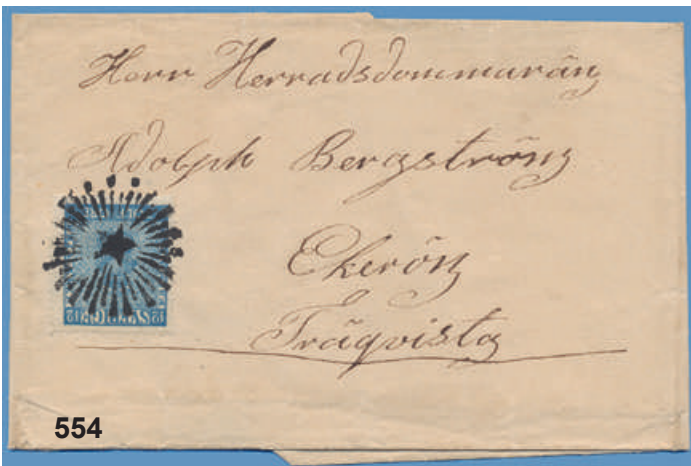 Herr Herradsdommarän
Adolph Bergström
Ekerön
Träqvista
12 12
554